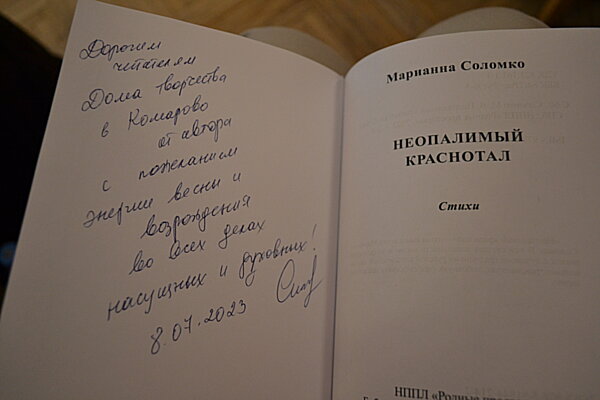 Дорогим
читателям
Дома творчества
в Комарово
от автора
с пожеланием
энергии весны и
возрождения
во всех делах
насущных и духовных!
8.07.2023
Марианна Соломко
НЕОПАЛИМЫЙ
КРАСНОТАЛ
Стихи
НППЛ «Родные